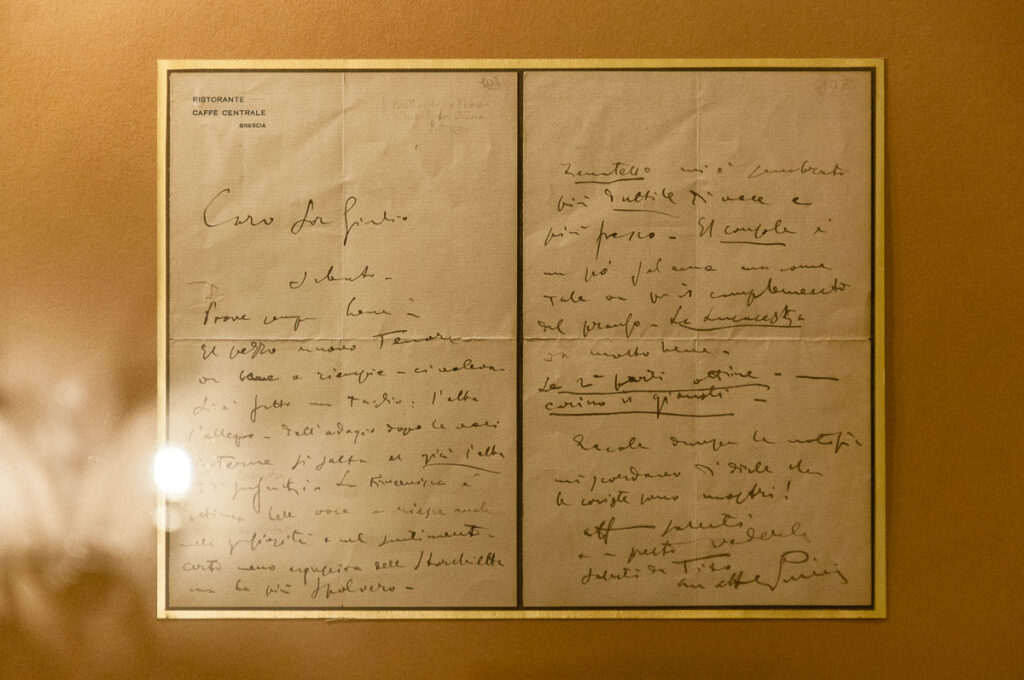 RISTORANTE
CAFFÈ CENTRALE
BRESCIA
Caro Sor Giulio
Sabato -
Prove sempre bene -
El pezzo nuovo Tenore
va bene e riempie - ci voleva -
Si è fatto un taglio: l'alba
l'allegro - dell'adagio dopo le voci
interne si salta al già l'alba
La Krusceniski è
ottima bella voce e riesce anche
nella e nel sentimento -
certo meno espressiva della Storchietta
ma ha più spolvero -
Zenatello mi è sembrato
più duttile di voce e
più fresco - El console è
un pò ma come
tale va per il complemento
del pranzo - La Lucacevska
va molto bene -
Le 2e parti ottime -
carino il
Eccole dunque le notizie
mi scordavo di dirle che
le coriste sono mostri!
aff saluti
a presto vederla
Saluti da Tito
suo aff Puccini